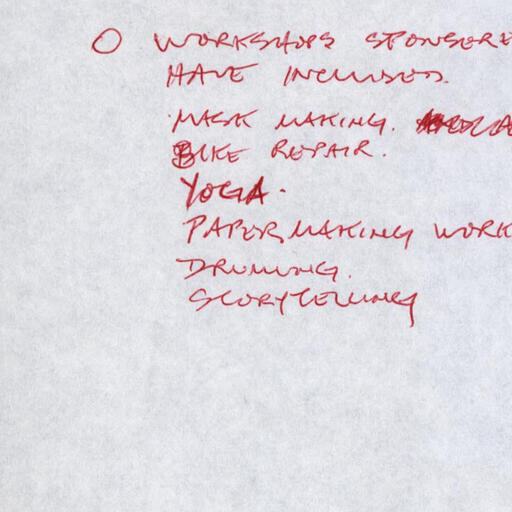 O WORKSHOPS SPONSORE
HAVE INCLUDED.
MASK MAKING.
BIKE REPAIR.
YOGA.
PAPERMAKING WORK
DRUMING.
STORYTELLING